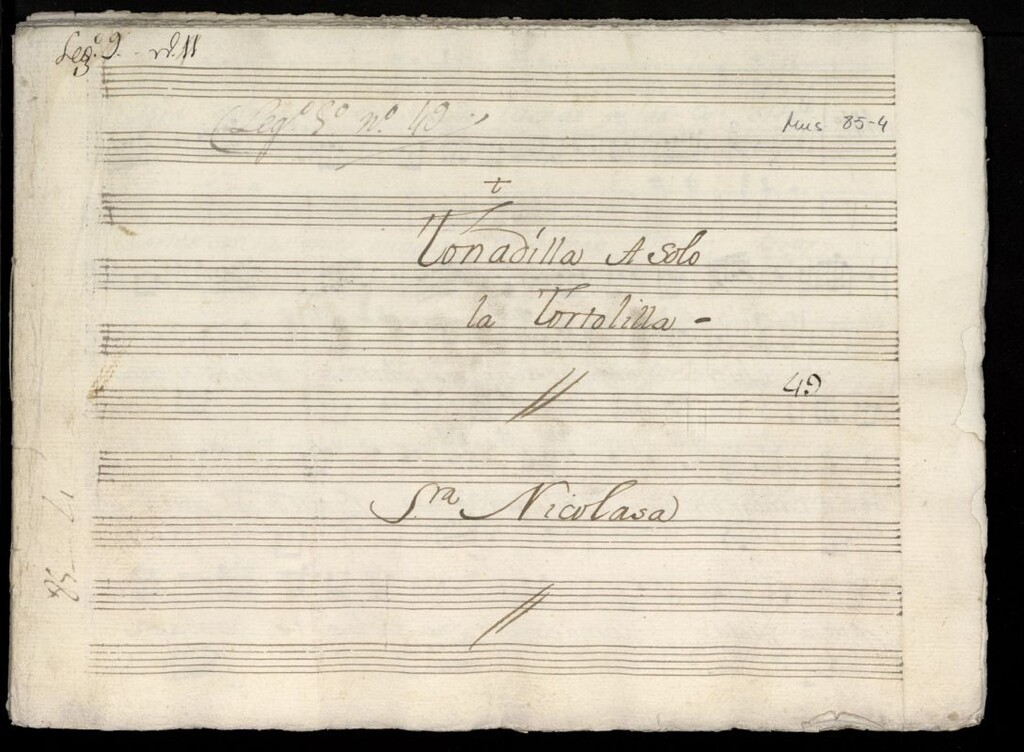 Leg.º 9. - nº. 11
(Leg.º 5º nº. 49
Mus 85-4
t
Tonadilla A Solo
la Tortolilla -
49
Sra Nicolasa
85-4